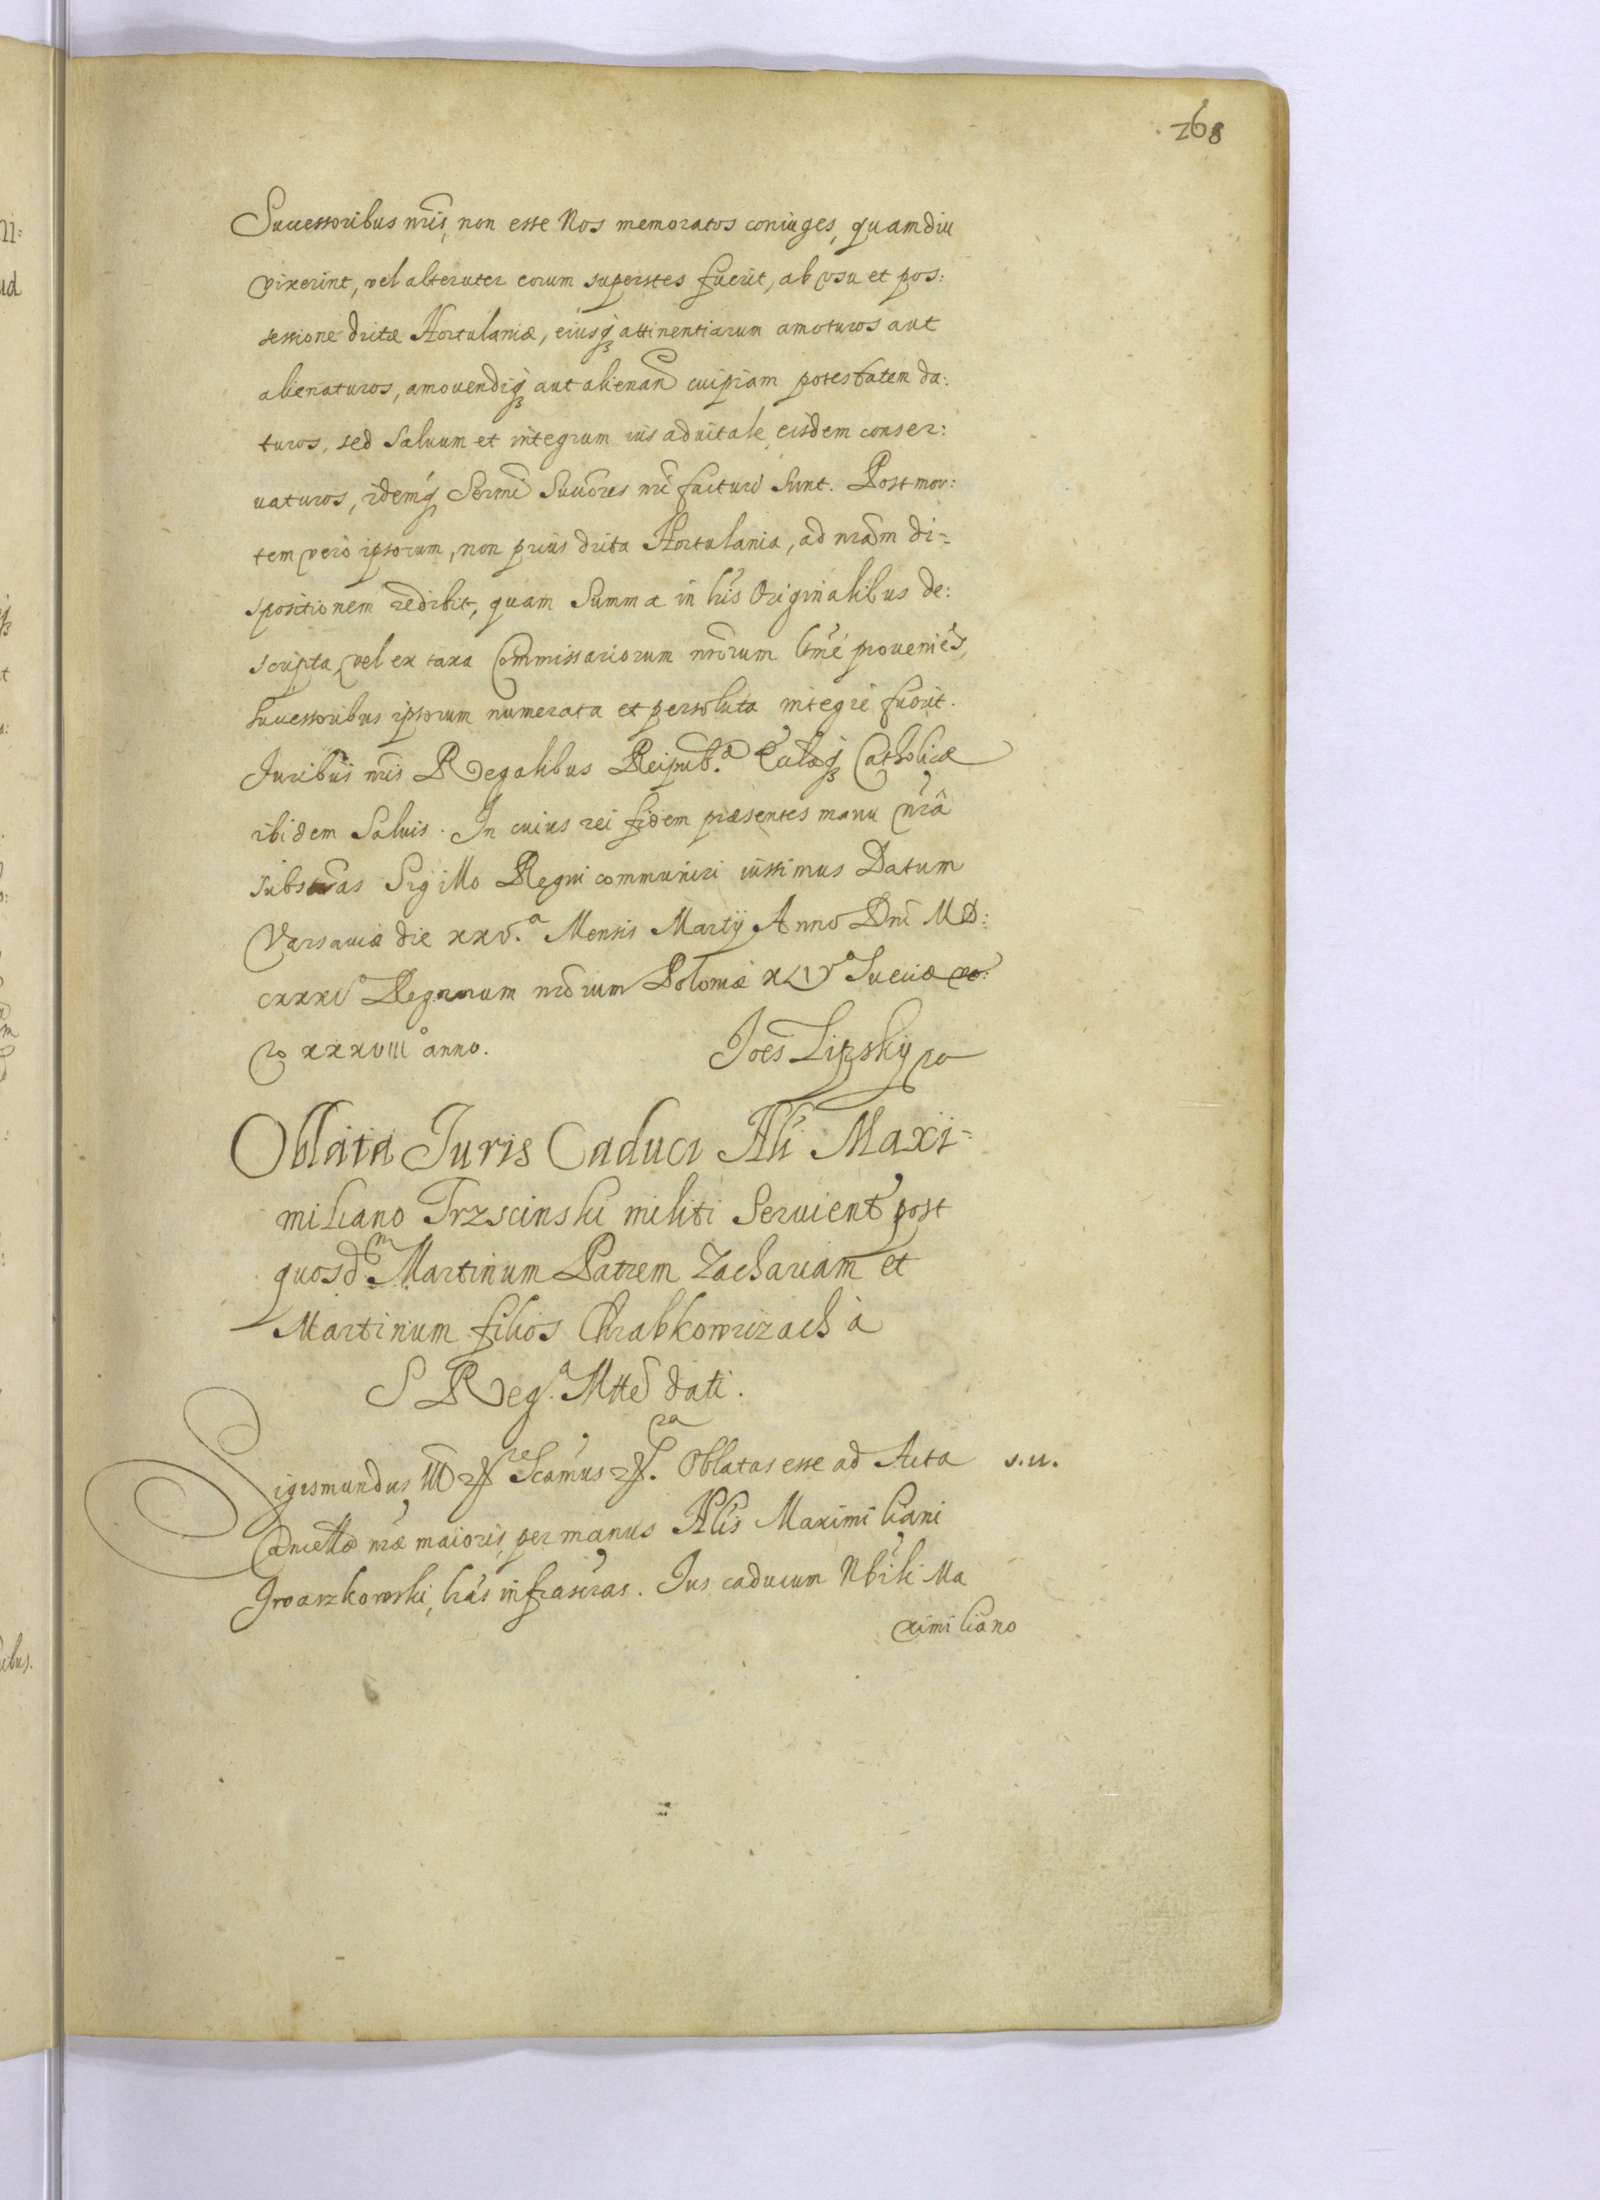 268
Successoribus nris, non esse Nos memoratos coniuges, quamdiu
vixerint, vel alteruter eorum superstes fuerit, ab vsu et pos:
sessione dictæ Hortulaniæ, eiusq attinentiarum amoturos aut
alienaturos, amovendiq aut alienan cuipiam potestatem da:
turos, sed Saluum et integrum ius aduitale eisdem conser:
uaturos, idemq Sermi Succres nri facturi Sunt. Post mor:
tem vero ipsorum, non prius dicta Hortulania, ad nram di=
spositionem redibit, quam Summa in lris Originalibus de:
scripta, vel ex taxa Commissariorum nrorum ltme proveniēs,
Successoribus ipsorum numerata et persoluta integre fuerit.
Juribus nris Regalibus Reipub.æ Eccliæq Catholicæ
ibidem Saluis. In cuius rei fidem præsentes manu nrâ
subscras Sigillo Regni communiri iussimus Datum
Varsaviæ die xxv.a Mensis Martij Anno Dni MD:
cxxxi Regnorum nrorum Poloniæ XLIV Sueciæ
vo XXXVIII anno. Joes Lipskij
Oblata Juris Caduci Nli Maxi=
miliano Trzscinski militi Seruient post
quosd.m Martinum Patrem Zachariam et
Martinum filios Chrabkowiczach à
S Reg.a Mtte dati.
Sigismundus III Scamus Oblatas esse ad Acta s.u.
Cancellæ nræ maioris, per manus Nlis Maximiliani
Gwarzkowski, lras infrascras. Jus caducum Nbili Ma
ximiliano